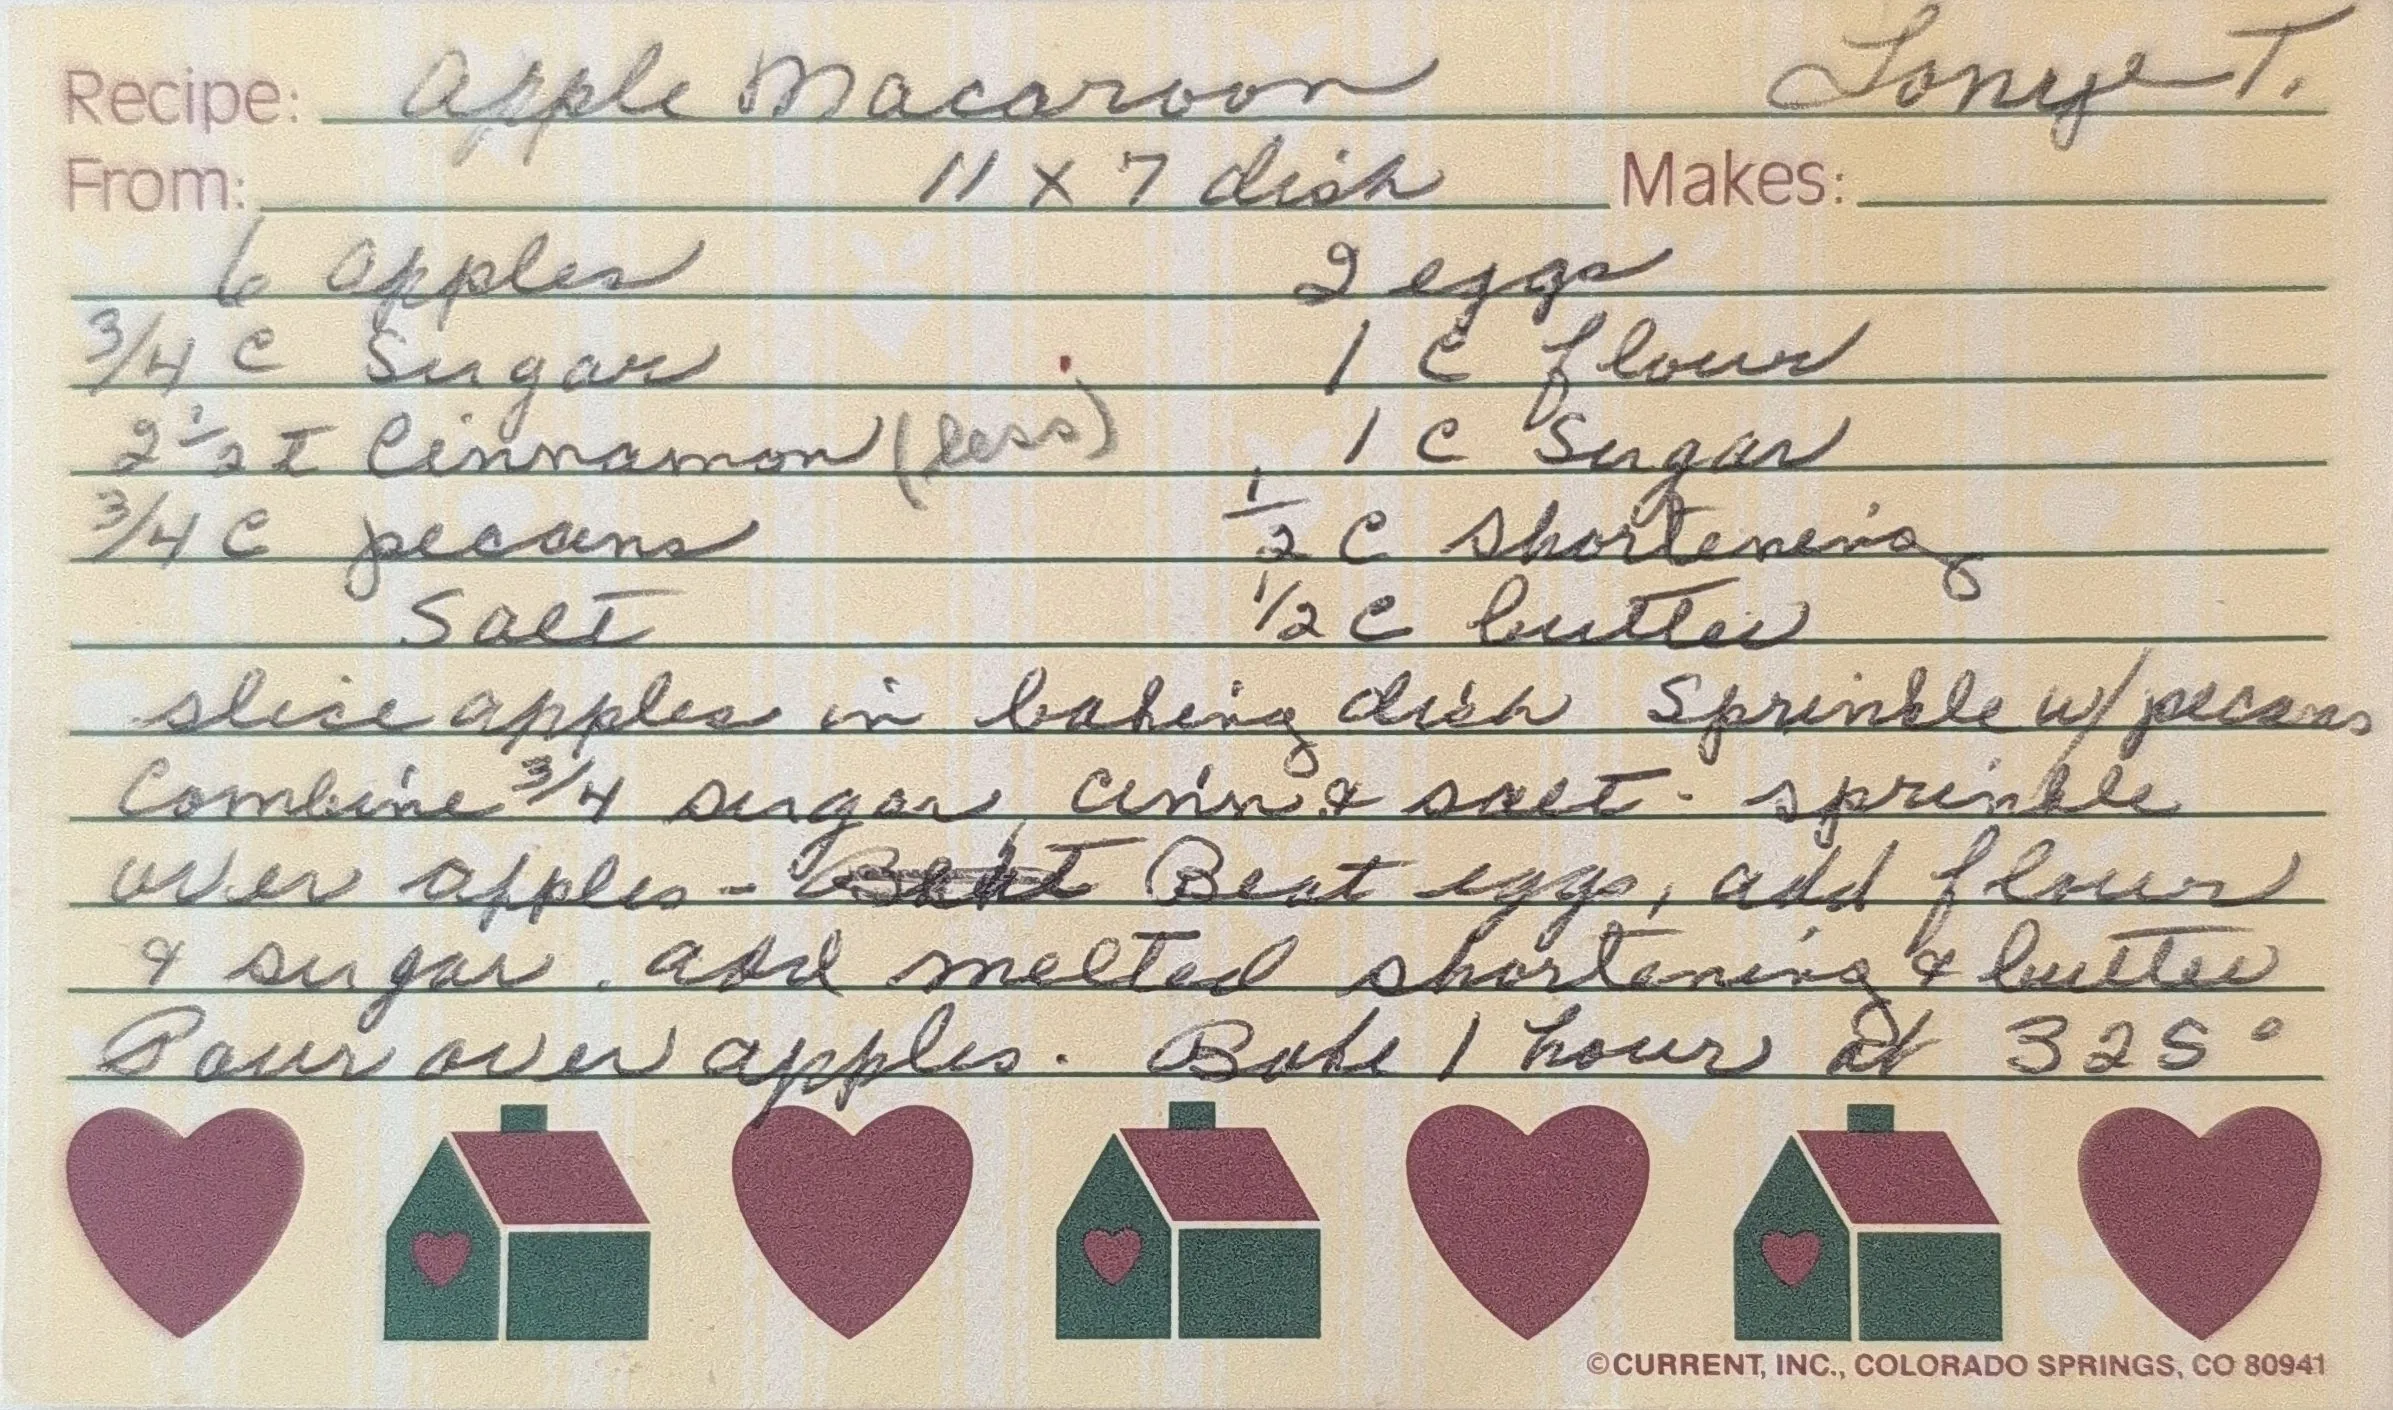 Recipe: Apple Macaroon Tonye T.
From: 11 x 7 dish Makes:
6 apples 2 eggs
3/4 C Sugar 1 C flour
2 1/2 t Cinnamon (less) 1 C Sugar
3/4 C pecans 1/2 C shortening
Salt 1/2 C butter
slice apples in baking dish Sprinkle w/ pecans
Combine 3/4 sugar, cinn. & salt - sprinkle
over apples - Beat eggs, add flour
& sugar. add melted shortening & butter
Pour over apples. Bake 1 hour at 325°
©CURRENT, INC., COLORADO SPRINGS, CO 80941